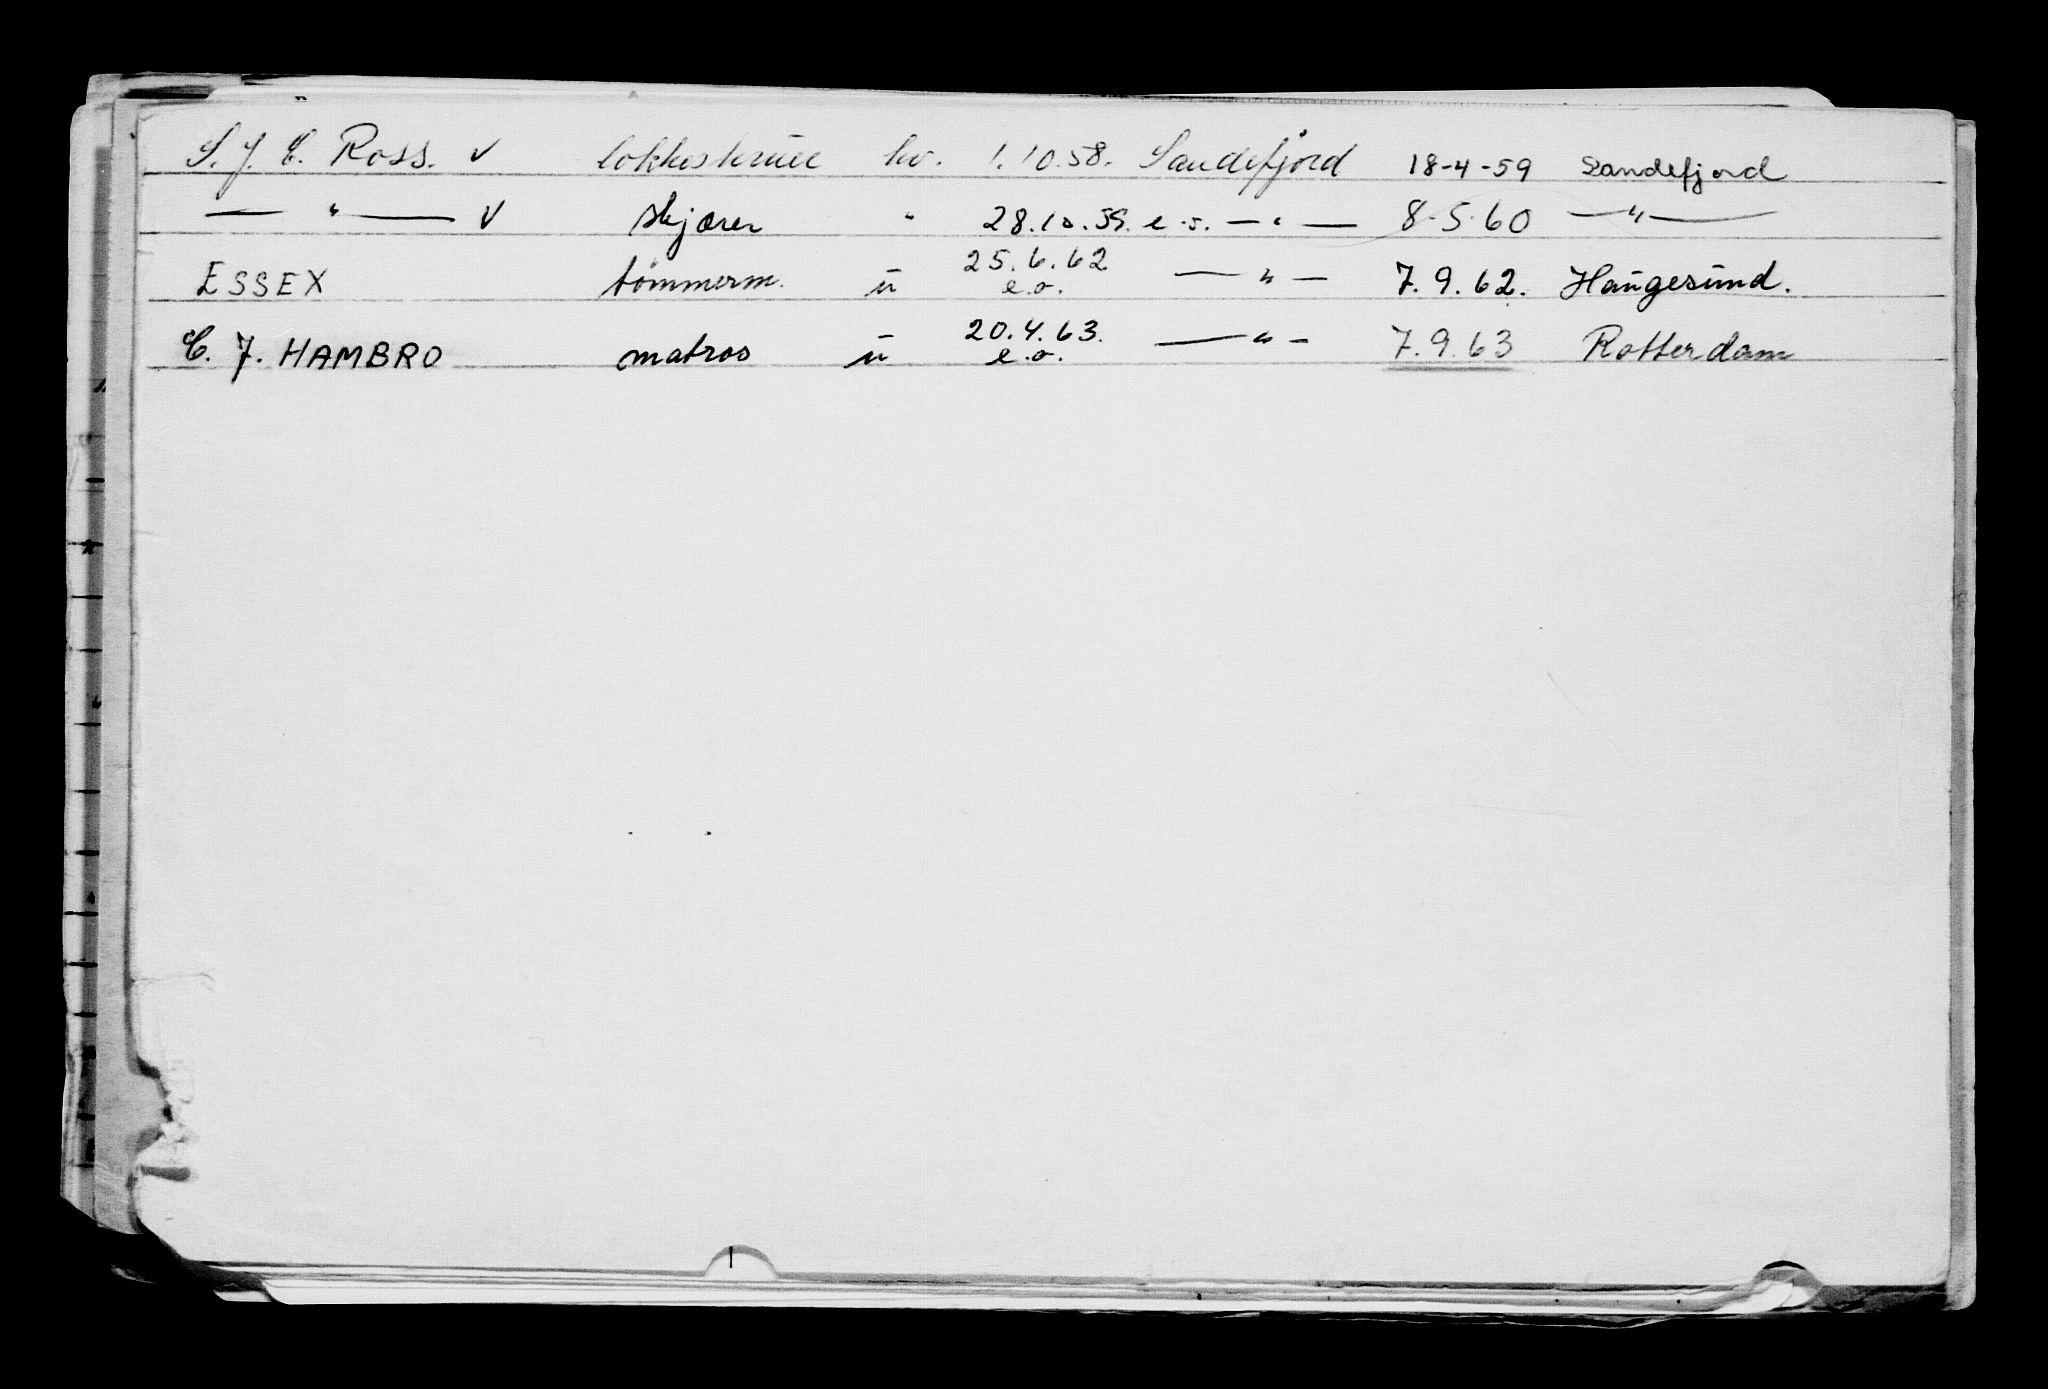 S. J. E. Ross. v lokkeskruer hv. 1.10.58. Sandefjord 18-4-59 Sandefjord
— " — v skjærer " 28.10.59. e.s. — " — 8-5-60 — " —
ESSEX tømmerm. u 25.6.62 e.o. — " — 7.9.62. Haugesund.
C. J. HAMBRO matros u 20.4.63. e.o. — " — 7.9.63 Rotterdam